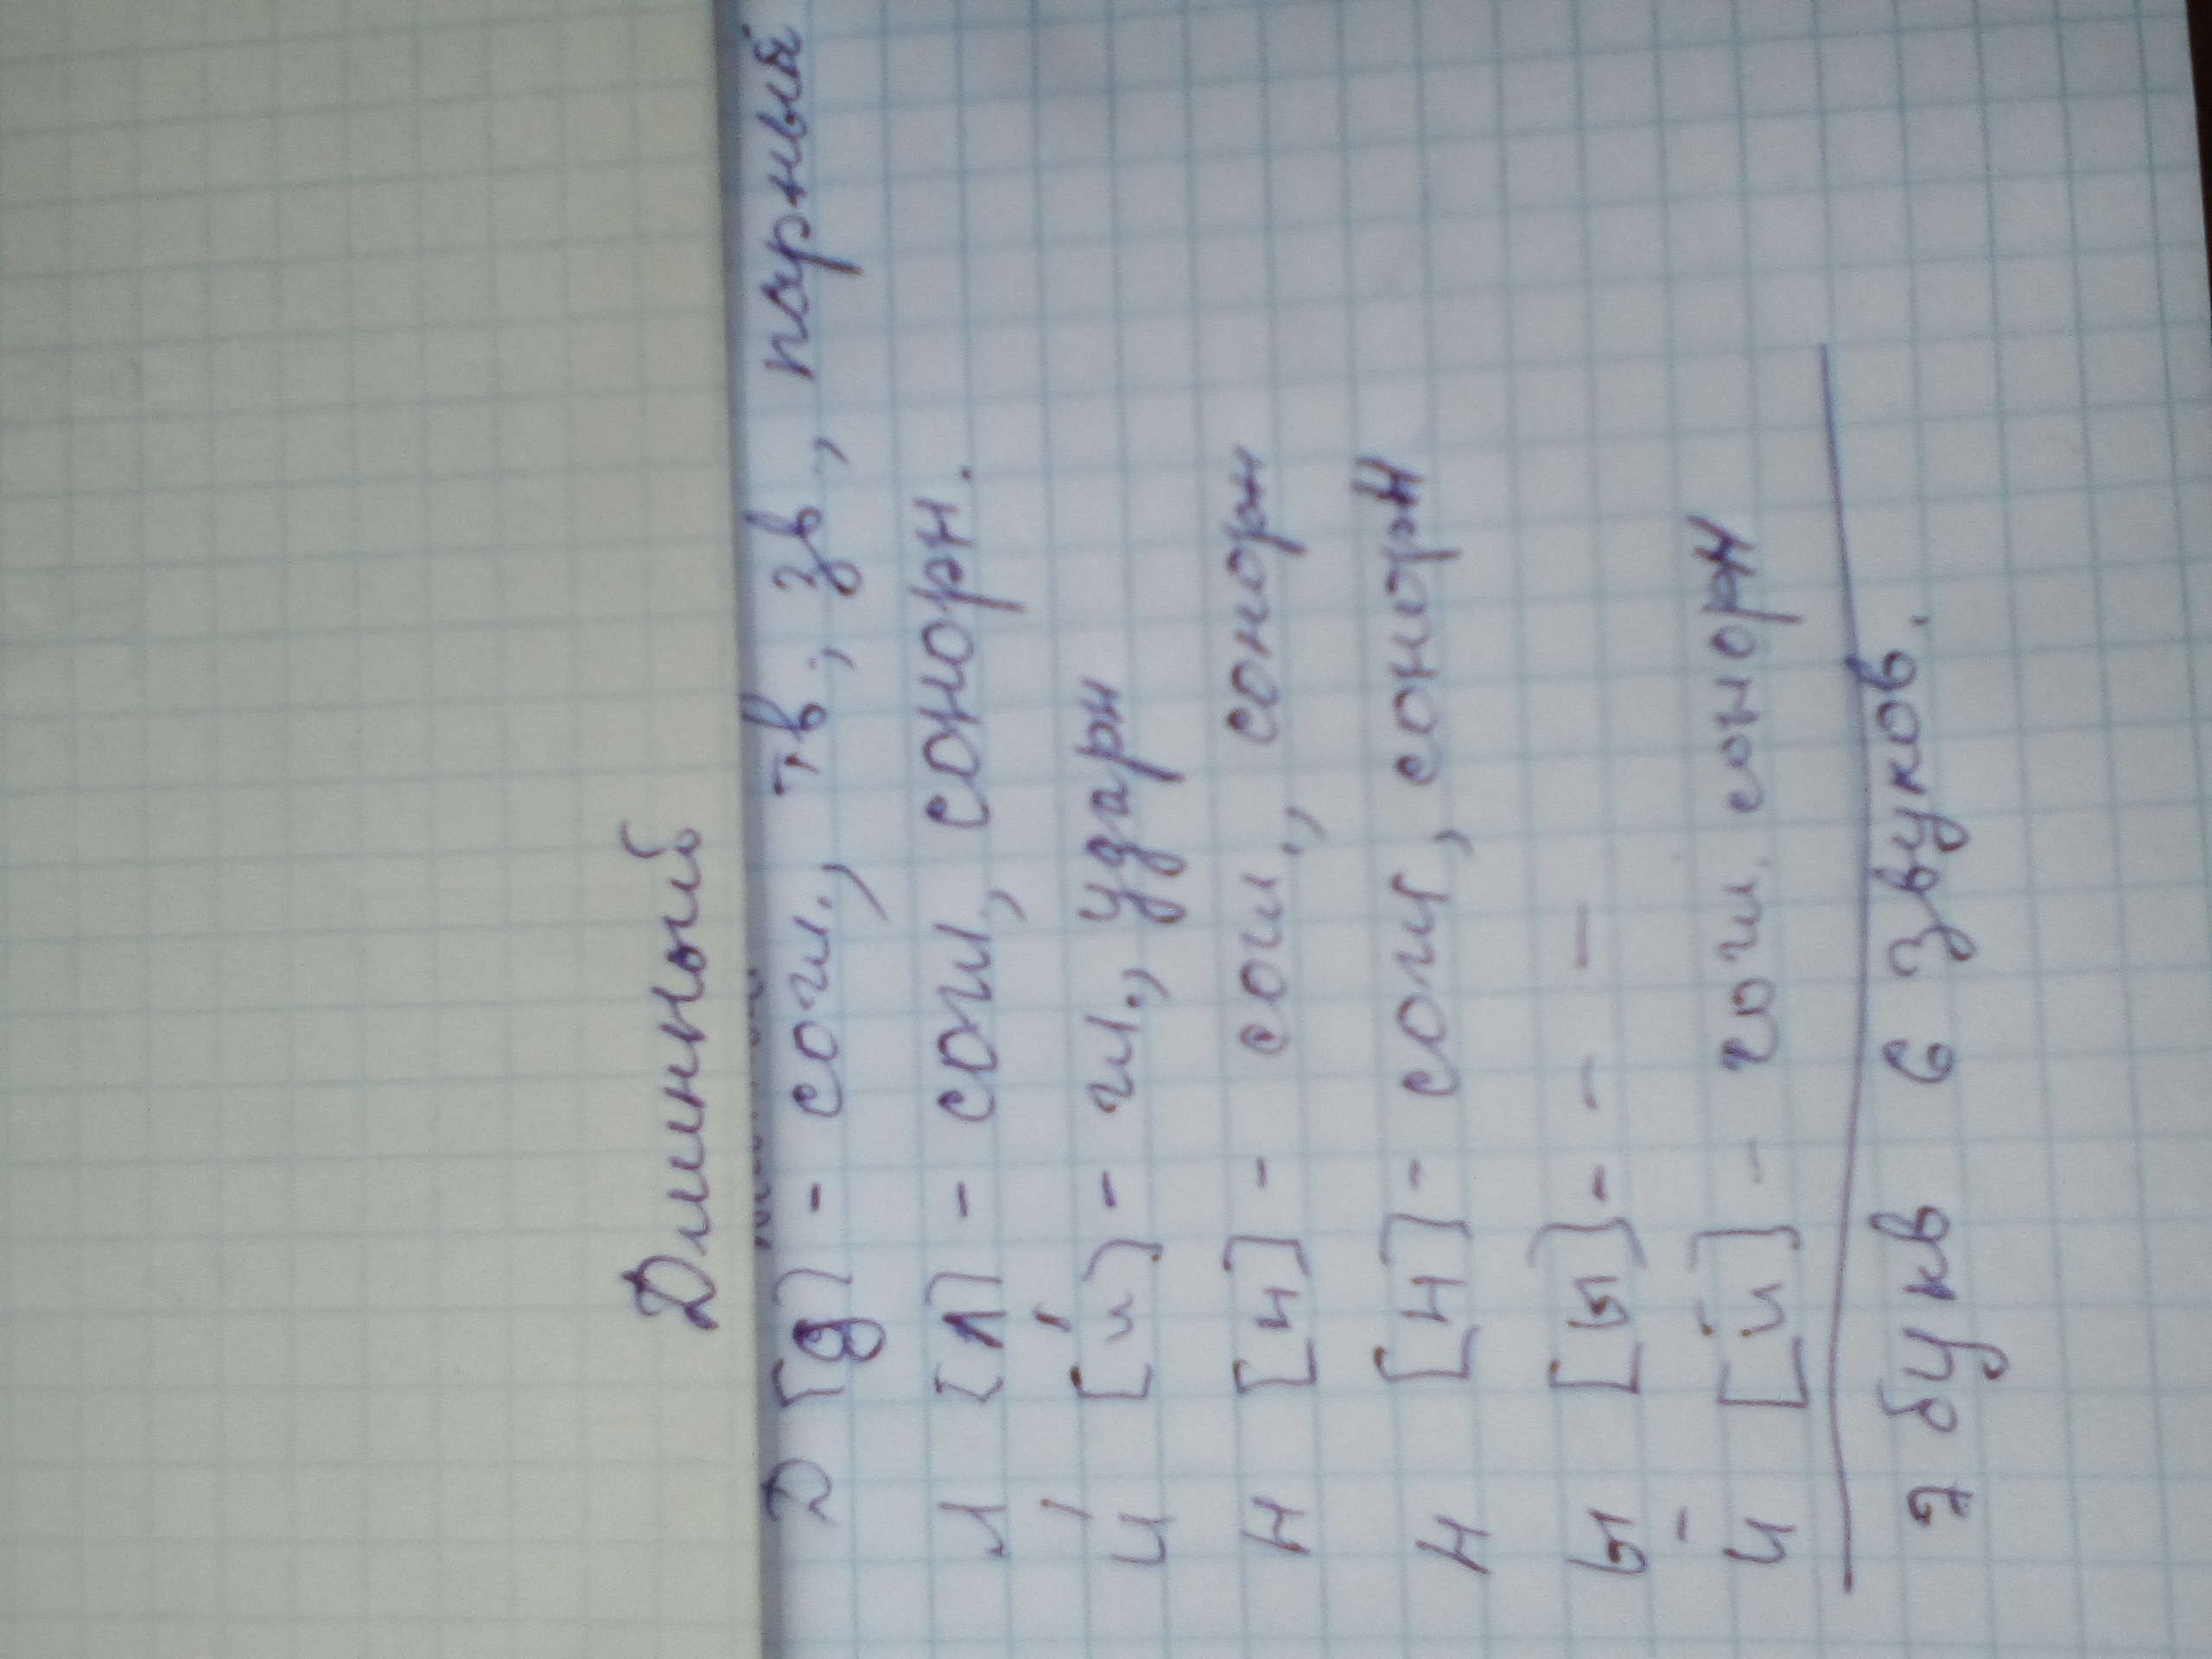 Длинный
Д [д] - согл., тв, зв, парный
л [л] - согл, сонорн.
и́ [и́] - гл., ударн
н [н] - согл., сонорн
н [н] - согл, сонорн
ы [ы] - - -
й [й] - согл. сонорн
7 букв 6 звуков.